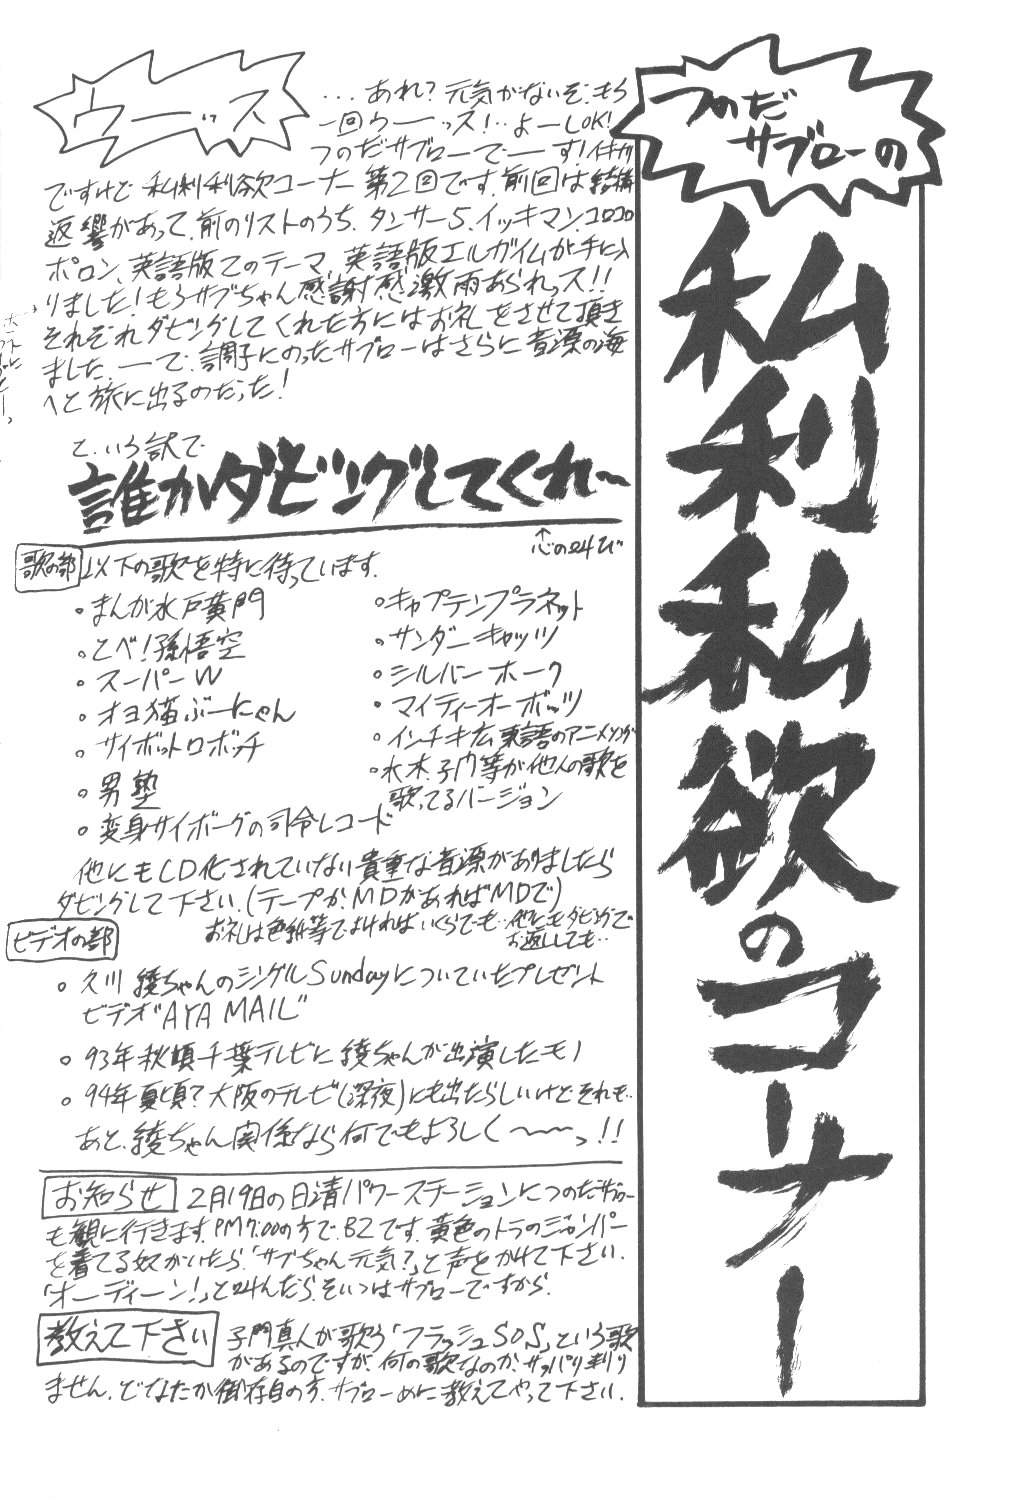 つのだ
サブローの
私利私欲のコーナー
ウーッス
・・・あれ?元気がないぞ、もう
一回ウーーッス!・・よーしOK!
つのだサブローでーーす!イキナリ
ですけど私利私欲コーナー第2回です。前回は結構
返響があって、前のリストのうち、タンサー5、イッキマン、コロコロ
ポロン、英語版Zのテーマ、英語版エルガイムが手に入
りました!もうサブちゃん感謝感激雨あられっス!!
それぞれダビングしてくれた方にはお礼をさせて頂き
ました。ーーで、調子にのったサブローはさらに音源の海
へと旅に出るのだった!
と、いう訳で
誰かダビングしてくれ〜
↑心の叫び
歌の部 以下の歌を特に待っています。
・まんが水戸黄門
・とべ!孫悟空
・スーパーW
・オヨ猫ぶーにゃん
・サイボットロボッチ
・男塾
・変身サイボーグの司令レコード
・キャプテンプラネット
・サンダーキャッツ
・シルバーホーク
・マイティーオーボッツ
・インチキ広東語のアニメソング
・水木、子門等が他人の歌を
歌ってるバージョン
他にもCD化されていない貴重な音源がありましたら
ダビングして下さい。(テープか、MDがあればMDで)
お礼は色紙等でよければいくらでも・・他にもダビングで
お返ししても・・
ビデオの部
・久川綾ちゃんのシングルSundayについていたプレゼント
ビデオ"AYA MAIL"
・93年秋頃千葉テレビに綾ちゃんが出演したモノ
・94年夏頃?大阪のテレビ(深夜)にも出たらしいけどそれも・・
あと、綾ちゃん関係なら何でもよろしく〜〜〜っ!!
お知らせ 2月19日の日清パワーステーションにつのだサブロー
も観に行きます。PM7:00の方でB2です。黄色のトラのジャンパー
を着てる奴がいたら「サブちゃん元気?」と声をかけて下さい。
「オーディーン!」と叫んだら、そいつはサブローですから。
教えて下さい 子門真人が歌う「フラッシュSOS」という歌
があるのですが、何の歌なのか、サッパリ判り
ません。どなたか御存知の方、サブローめに教えてやって下さい。